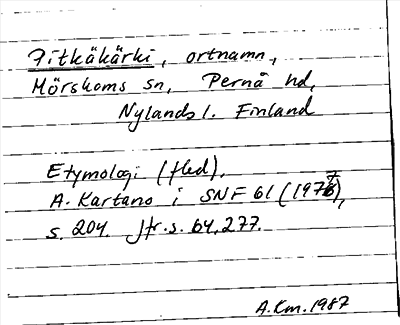 Pitkäkärki, ortnamn,
Mörskoms sn, Pernå hd,
Nylands l. Finland
Etymologi (fled).
A. Kartano i SNF 61 (1977),
s. 204. Jfr. s. 64, 277.
A.Km. 1987